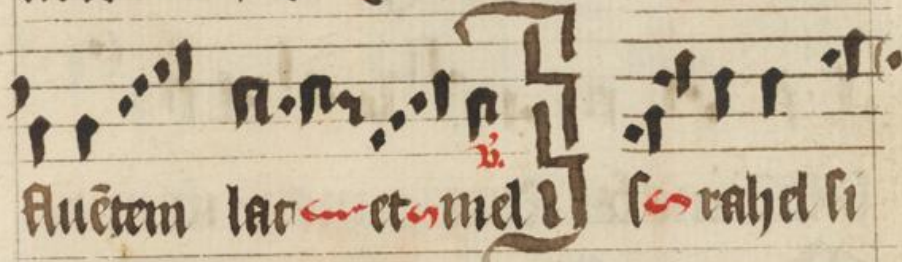 fluētem lac et mel ℣. I srahel si